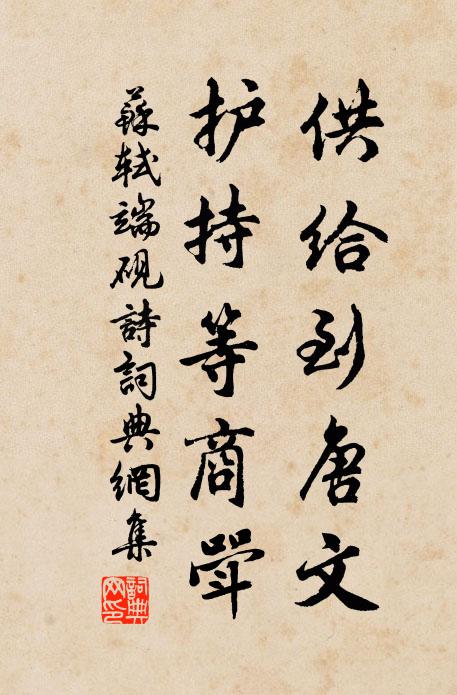 供给到唐文
护持等商斝
蘇軾端硯詩詞典網集
詞典网印